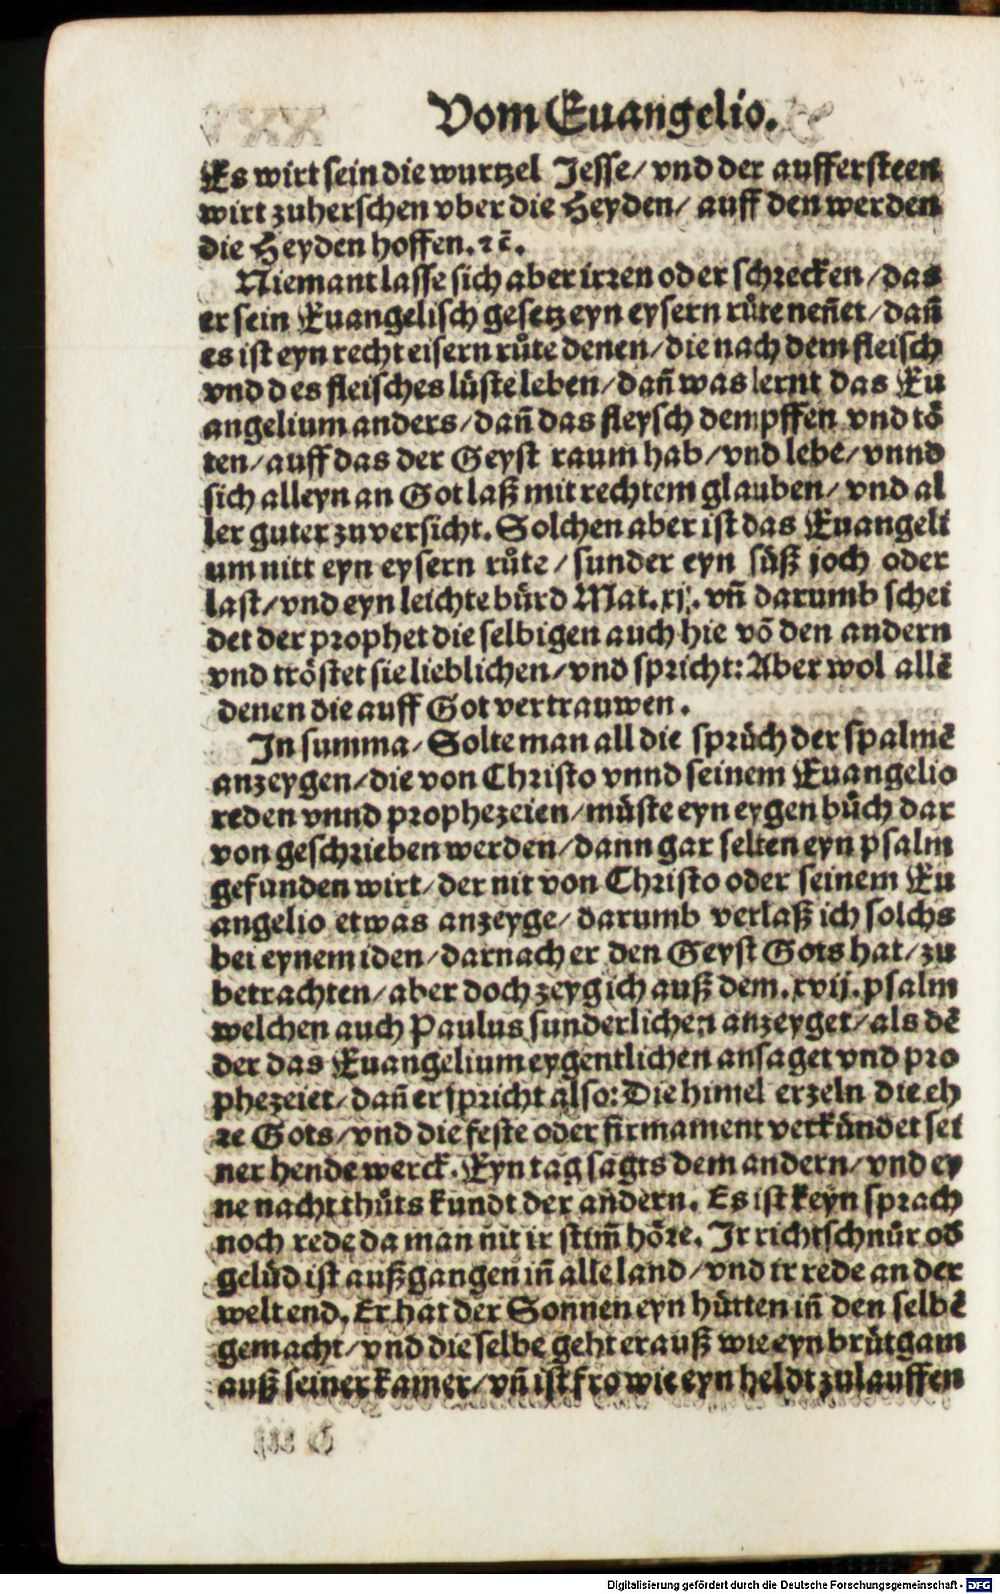 Vom Euangelio.
Es wirt sein die wurtzel Jesse/ vnd der auffersteen
wirt zuherschen vber die Heyden/ auff den werden
die Heyden hoffen. ⁊c̄.
Niemant lasse sich aber irren oder schrecken/ das
er sein Euangelisch gesetz eyn eysern růte neñet/ dañ
es ist eyn recht eisern růte denen/ die nach dem fleisch
vnd des fleisches lüste leben/ dañ was lernt das Eu
angelium anders/ dañ das fleysch dempffen vnd tö
ten/ auff das der Geyst raum hab/ vnd lebe/ vnnd
sich alleyn an Got laß mit rechtem glauben/ vnd al
ler guter zuversicht. Solchen aber ist das Euangeli
um nitt eyn eysern růte/ sunder eyn süß joch oder
last/ vnd eyn leichte bürd Mat. xj. vñ darumb schei
det der prophet die selbigen auch hie võ den andern
vnd tröstet sie lieblichen/ vnd spricht: Aber wol allē
denen die auff Got vertrauwen.
In summa/ Solte man all die sprüch der spalmē
anzeygen/ die von Christo vnnd seinem Euangelio
reden vnnd prophezeien/ müste eyn eygen bůch dar
von geschrieben werden/ dann gar selten eyn psalm
gefunden wirt/ der nit von Christo oder seinem Eu
angelio etwas anzeyge/ darumb verlaß ich solchs
bei eynem iden/ darnach er den Geyst Gots hat/ zu
betrachten/ aber doch zeyg ich auß dem. xvij. psalm
welchen auch Paulus sunderlichen anzeyget/ als dē
der das Euangelium eygentlichen ansaget vnd pro
phezeiet/ dañ er spricht also: Die himel erzeln die eh
re Gots/ vnd die feste oder firmament verkündet sei
ner hende werck. Eyn tag sagts dem andern/ vnd ey
ne nacht thůts kundt der andern. Es ist keyn sprach
noch rede da man nit ir stim̃ höre. Ir richtschnůr od
gelüd ist außgangen in̄ alle land/ vnd ir rede an der
welt end. Er hat der Sonnen eyn hütten in̄ den selbē
gemacht/ vnd die selbe geht erauß wie eyn brütgam
auß seiner kamer/ vñ ist fro wie eyn heldt zulauffen
Digitalisierung gefördert durch die Deutsche Forschungsgemeinschaft - DFG